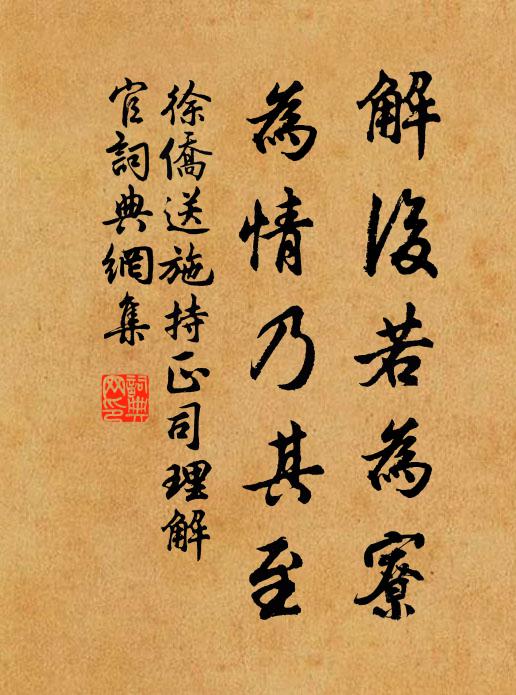 解後若為寮
為情乃其至
徐僑送施持正司理解
官詞典網集
詞典网印